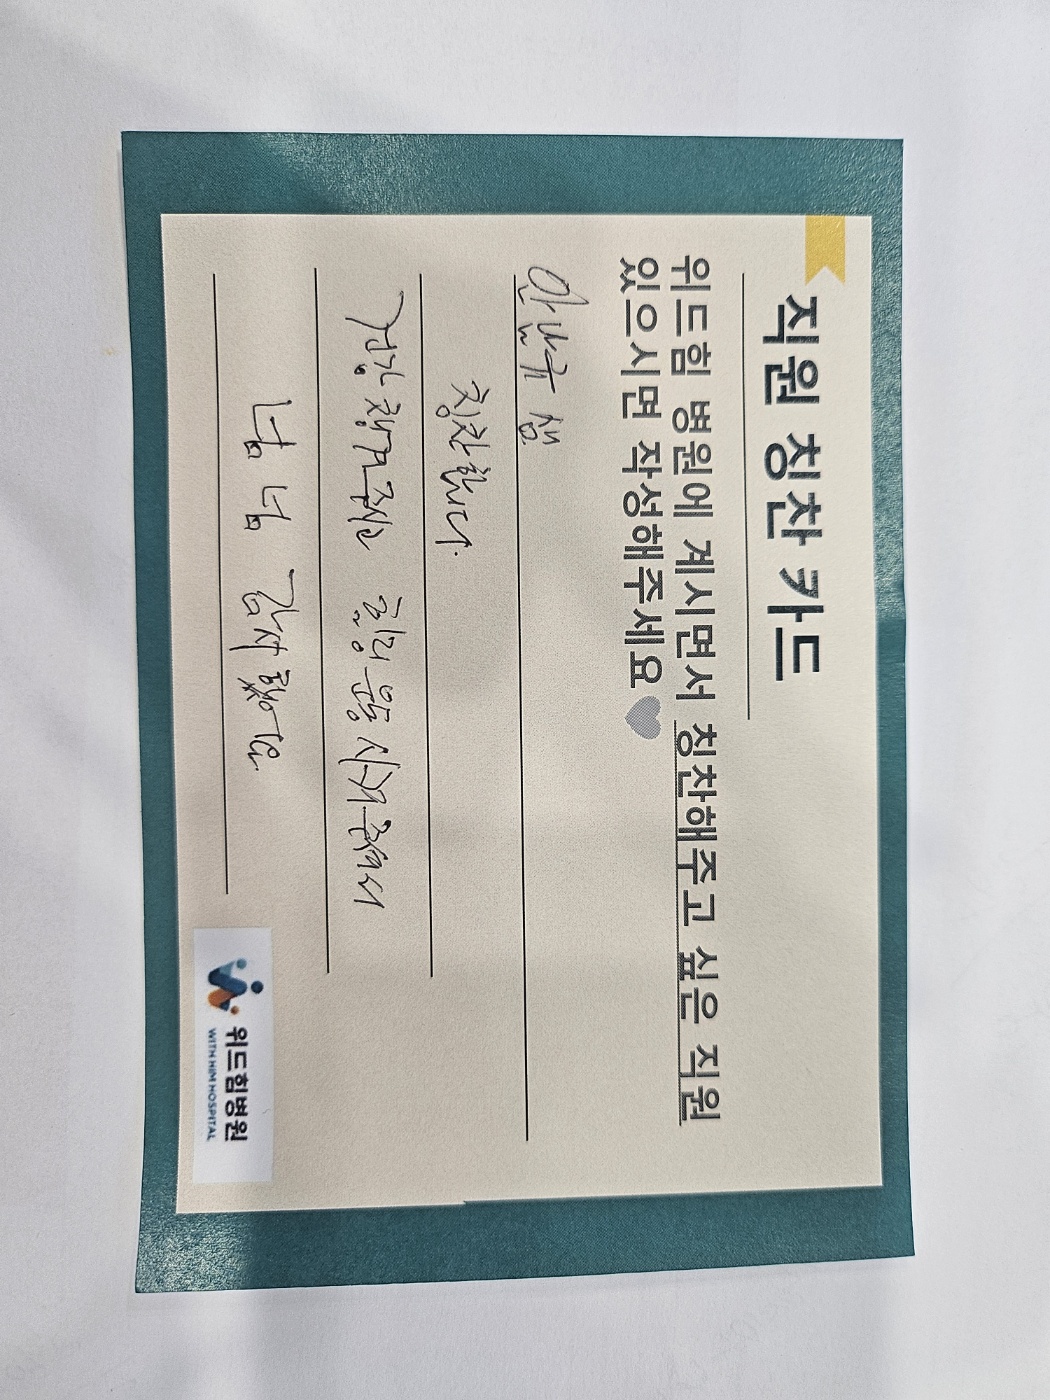 직원 칭찬 카드
위드힘 병원에 계시면서 칭찬해주고 싶은 직원
있으시면 작성해주세요
샘
칭찬합니다.
건강 책겨주시고 힐링 운동 시켜주셔서
넘 넘 감사했어요.
위드힘병원
WITH HIM HOSPITAL